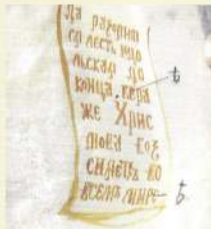 Да разорит
ся лесть идо
льская до
конца. вера ѣ
же Хрис
това воз
сияетъ во
всемъ мире ѣ